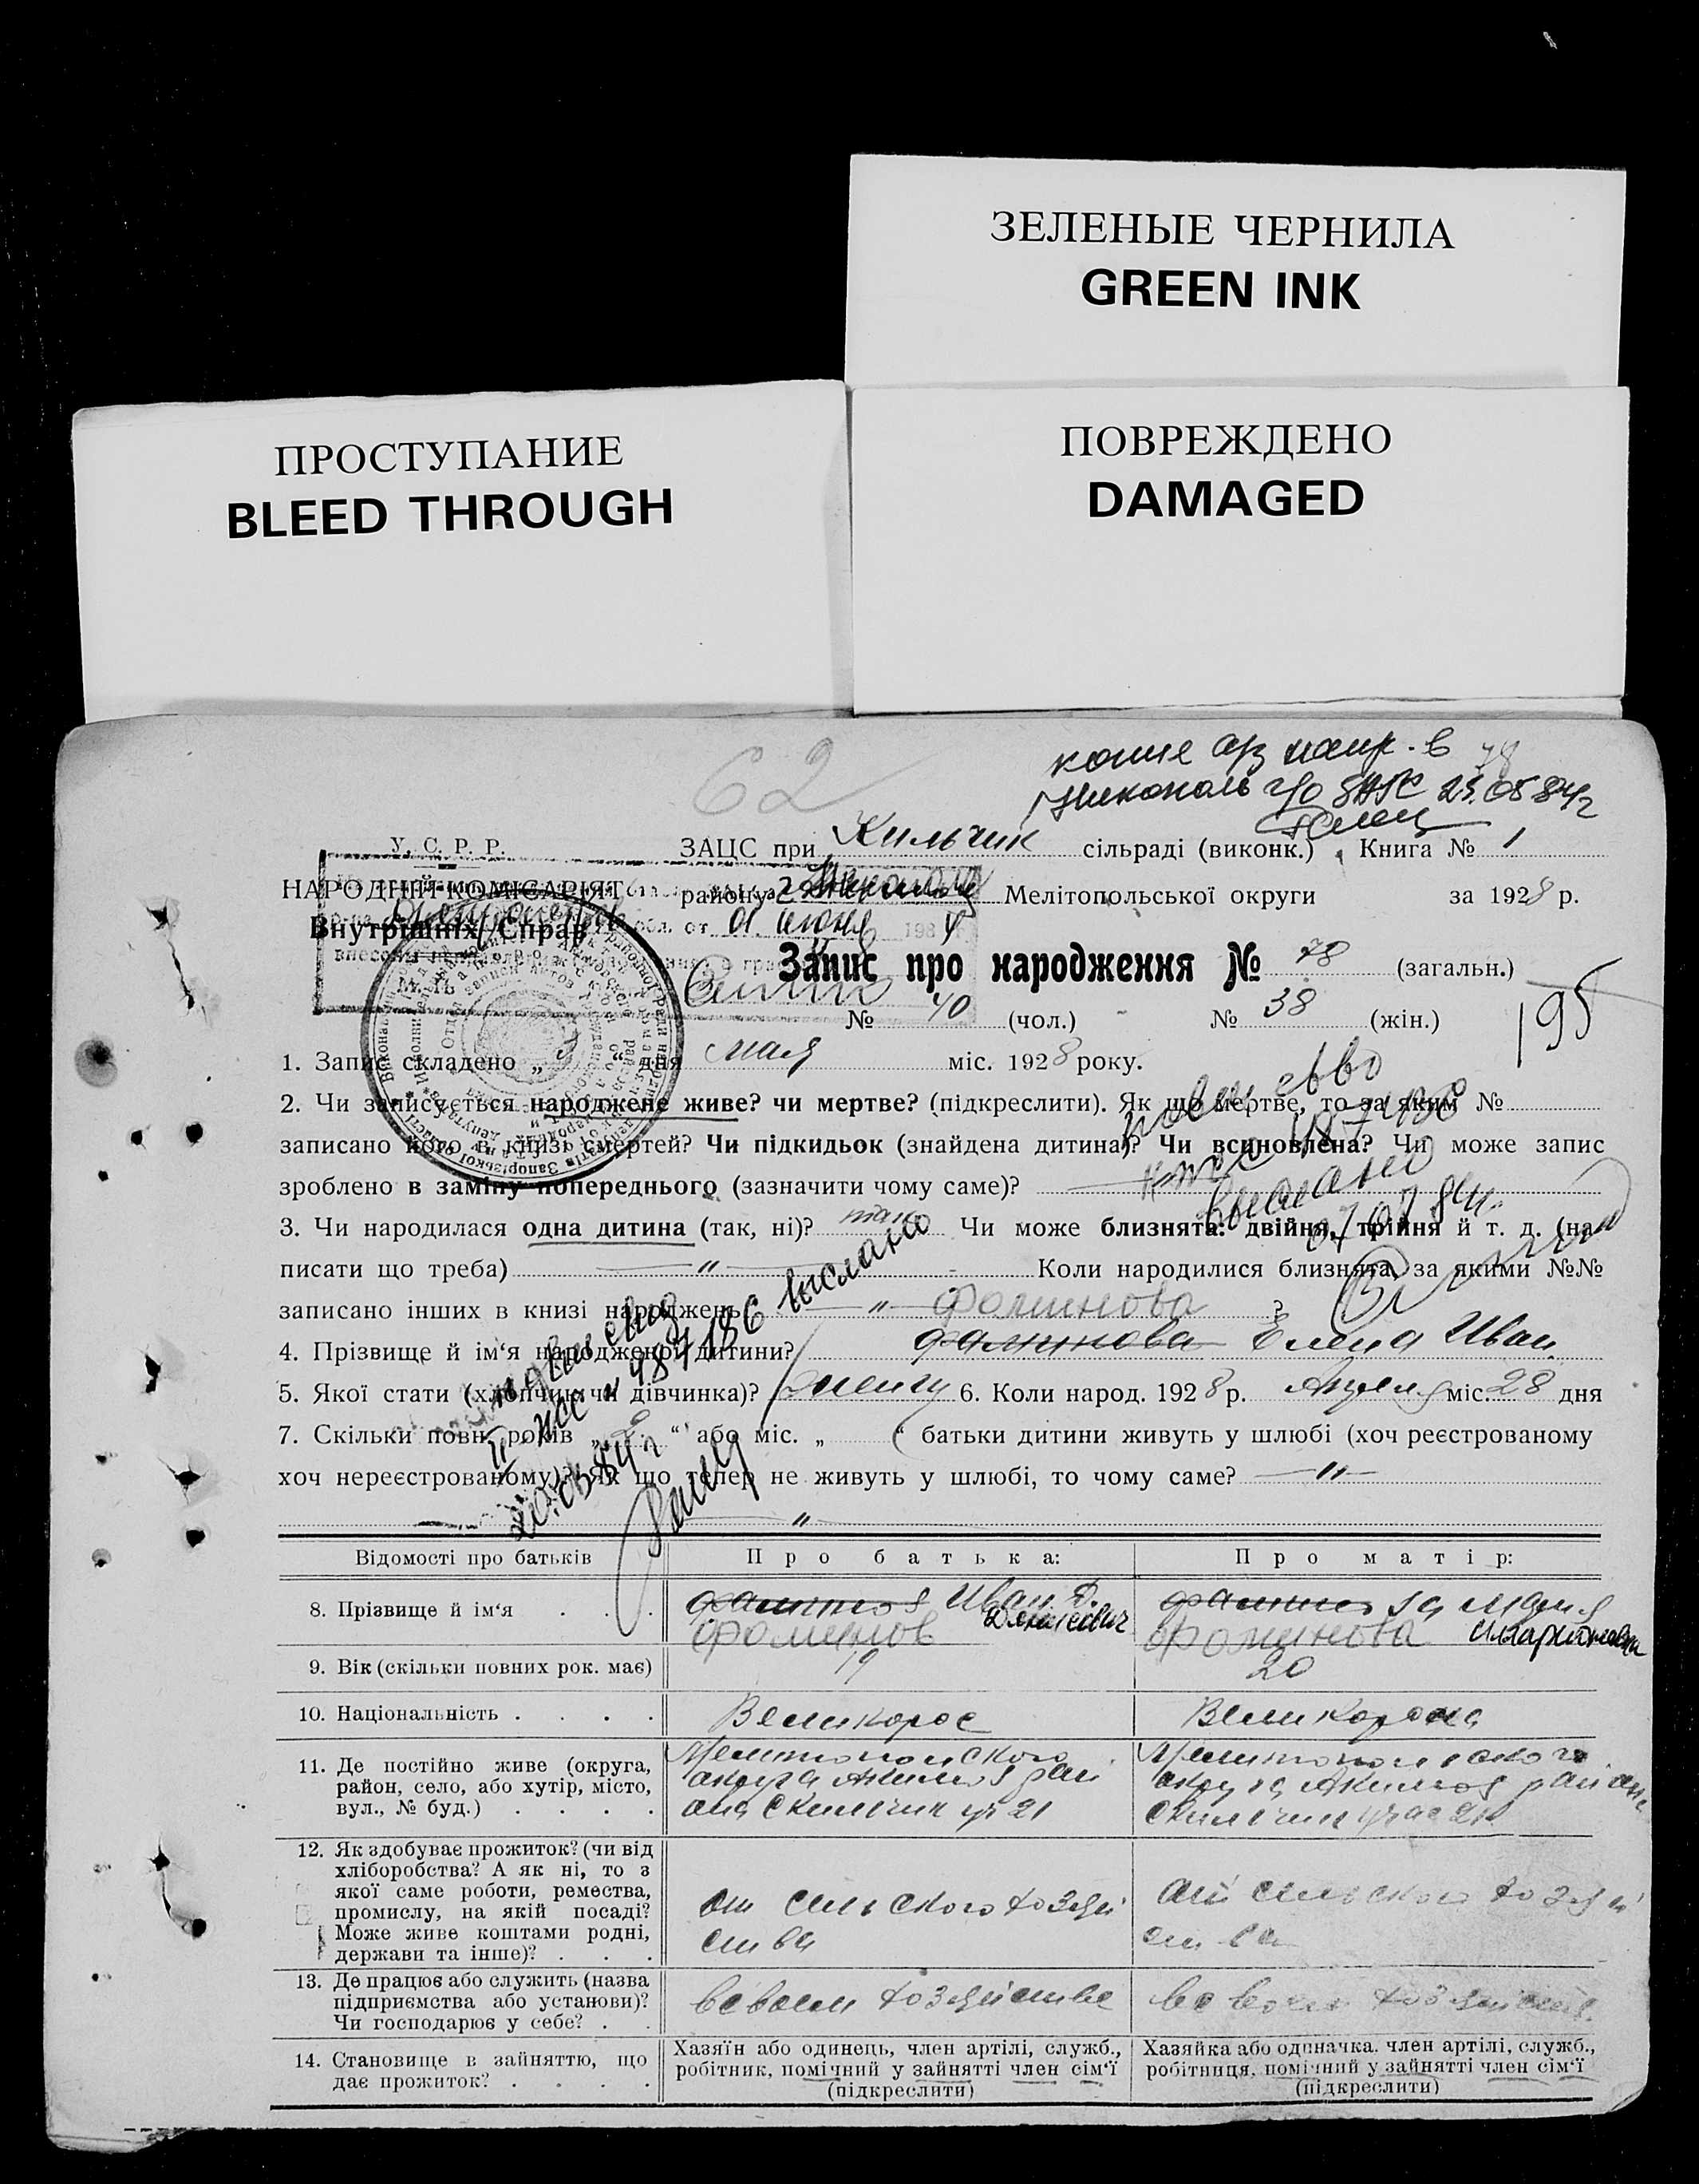 ЗЕЛЕНЫЕ ЧЕРНИЛА
GREEN INK
ПРОСТУПАНИЕ
BLEED THROUGH
ПОВРЕЖДЕНО
DAMAGED
62
копие а/з напр. в 78
Никополь г/о ЗАГС 25.05 84 г
У. С. Р. Р.
ЗАЦС при Кильчик сільраді (виконк.) Книга № 1
НАРОДНІЙ КОМІСАРІЯТ
району Мелітопольської округи за 1928 р.
Внутрішніх Справ
обл. от 01. июня 1984
Запис про народження № 78 (загальн.)
№ 40 (чол.) № 38 (жін.)
195
1. Запис складено „3“ дня мая міс. 1928 року.
2. Чи записується народжене живе? чи мертве? (підкреслити). Як що мертве, то за яким №
записано його в книзі смертей? Чи підкидьок (знайдена дитина)? Чи всиновлена? Чи може запис
зроблено в заміну попереднього (зазначити чому саме)?
выслано
07 07 84 г.
3. Чи народилася одна дитина (так, ні)? так Чи може близнята: двійня, трійня й т. д. (на-
писати що треба) — „ — Коли народилися близнята, за якими №№
записано інших в книзі народжень — „ — Фоминова ?
4. Прізвище й ім‘я народженої дитини? Фаминова Елена Иван
5. Якої стати (хлопчик чи дівчинка)? 6. Коли народ. 1928 р. Апреля міс. 28 дня
7. Скільки повн. років „2“ або міс. „ “ батьки дитини живуть у шлюбі (хоч реєстрованому
хоч нереєстрованому)? Як що тепер не живуть у шлюбі, то чому саме? — „ —
„
выслано
Відомості про батьків
Про батька:
Про матір:
8. Прізвище й ім‘я . . .
Иван Д.
Фоминов
Мария
Фоминова Илларионовна
9. Вік (скільки повних рок. має)
19
20
10. Національність . . . .
Великорос
Великороска
11. Де постійно живе (округа,
район, село, або хутір, місто,
вул., № буд.) . . . .
Мелитопольского
округа Акимов рай
она с Кильчик уч 21
Мелитопольского
округа Акимов района
с Кильчик учас 21
12. Як здобуває прожиток? (чи від
хліборобства? А як ні, то з
якої саме роботи, ремества,
промислу, на якій посаді?
Може живе коштами родні,
держави та інше)? . . .
от сельского хозяй
ства
от сельского хозяй
ства
13. Де працює або служить (назва
підприємства або установи)?
Чи господарює у себе? . .
в своем хозяйстве
в своем хозяйстве
14. Становище в зайняттю, що
дає прожиток? . . . .
Хазяїн або одинець, член артілі, служб.,
робітник, помічний у зайнятті член сім‘ї
(підкреслити)
Хазяйка або одиначка. член артілі, служб.,
робітниця, помічний у зайнятті член сім‘ї
(підкреслити)